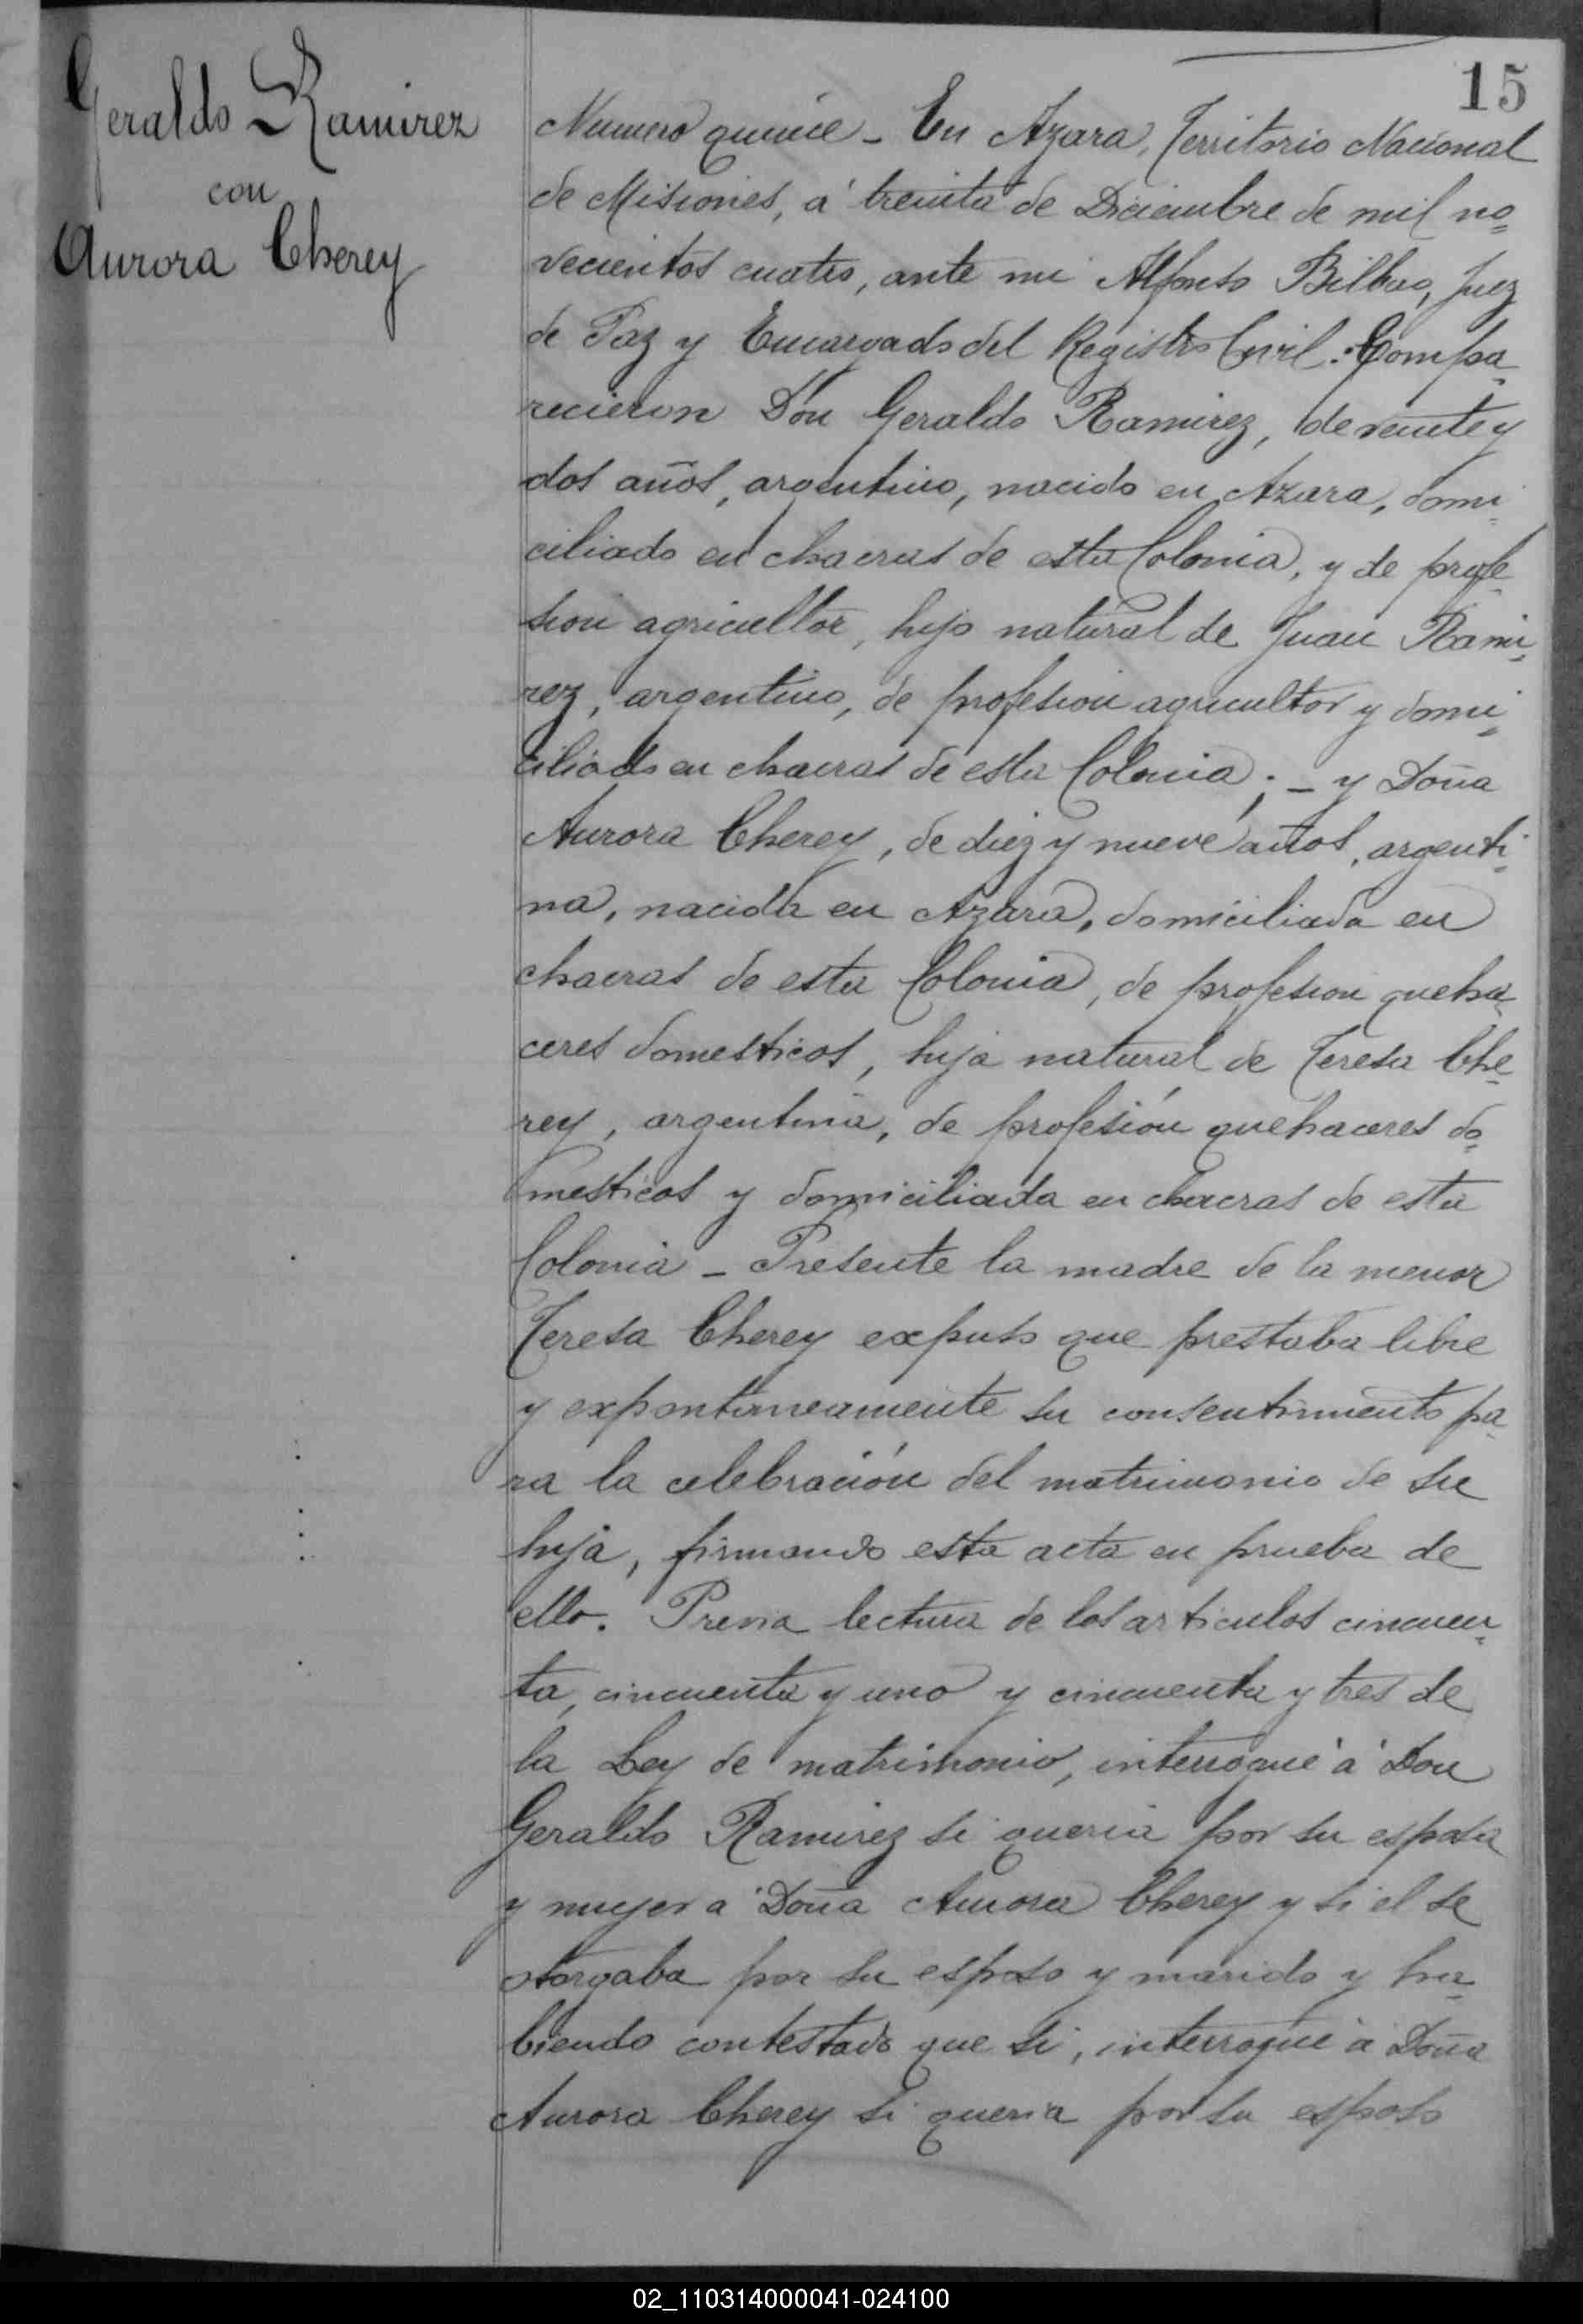 15
Geraldo Ramirez
con
Aurora Cherey
Numero quince - En Azara, Territorio Nacional
de Misiones, á treinta de Diciembre de mil no=
vecientos cuatro, ante mi Alfonso Bilbao, Juez
de Paz y Encargado del Registro Civil: Compa=
recieron Don Geraldo Ramirez, de veinte y
dos años, argentino, nacido en Azara, domi=
ciliado en chacras de esta Colonia, y de profe=
sion agricultor, hijo natural de Juan Rami=
rez, argentino, de profesion agricultor y domi=
ciliado en chacras de esta Colonia; - y Doña
Aurora Cherey, de diez y nueve años, argenti=
na, nacida en Azara, domiciliada en
chacras de esta Colonia, de profesion queha=
ceres domesticos, hija natural de Teresa Che=
rey, argentina, de profesión quehaceres do=
mesticos y domiciliada en chacras de esta
Colonia - Presente la madre de la menor
Teresa Cherey expuso que prestaba libre
y expontaneamente su consentimiento pa=
ra la celebración del matrimonio de su
hija, firmando esta acta en prueba de
ello. Previa lectura de los articulos cincuen=
ta, cincuenta y uno y cincuenta y tres de
la Ley de matrimonio, interrogué á Don
Geraldo Ramirez si queria por su esposa
y mujer a Doña Aurora Cherey y si el se
otorgaba por su esposo y marido y ha=
biendo contestado que si, interrogué á Doña
Aurora Cherey si queria por su esposo
02_110314000041-024100